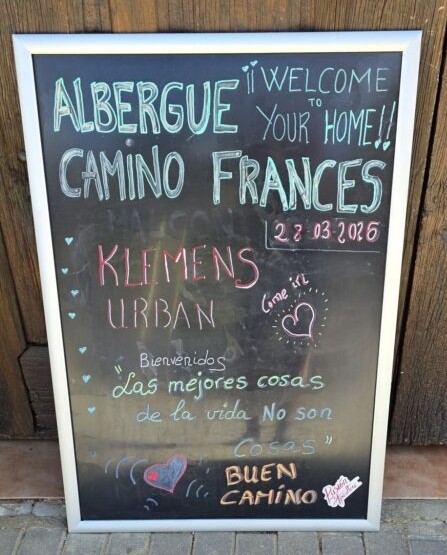 ALBERGUE
¡¡WELCOME
TO
YOUR HOME!!
CAMINO FRANCES
28-03-2026
KLEMENS
URBAN
Come in
Bienvenidos
"Las mejores cosas
de la vida No son
Cosas"
BUEN
CAMINO